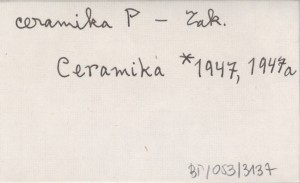 ceramika P – Zak.
Ceramika *1947, 1947a
BP/053/3137